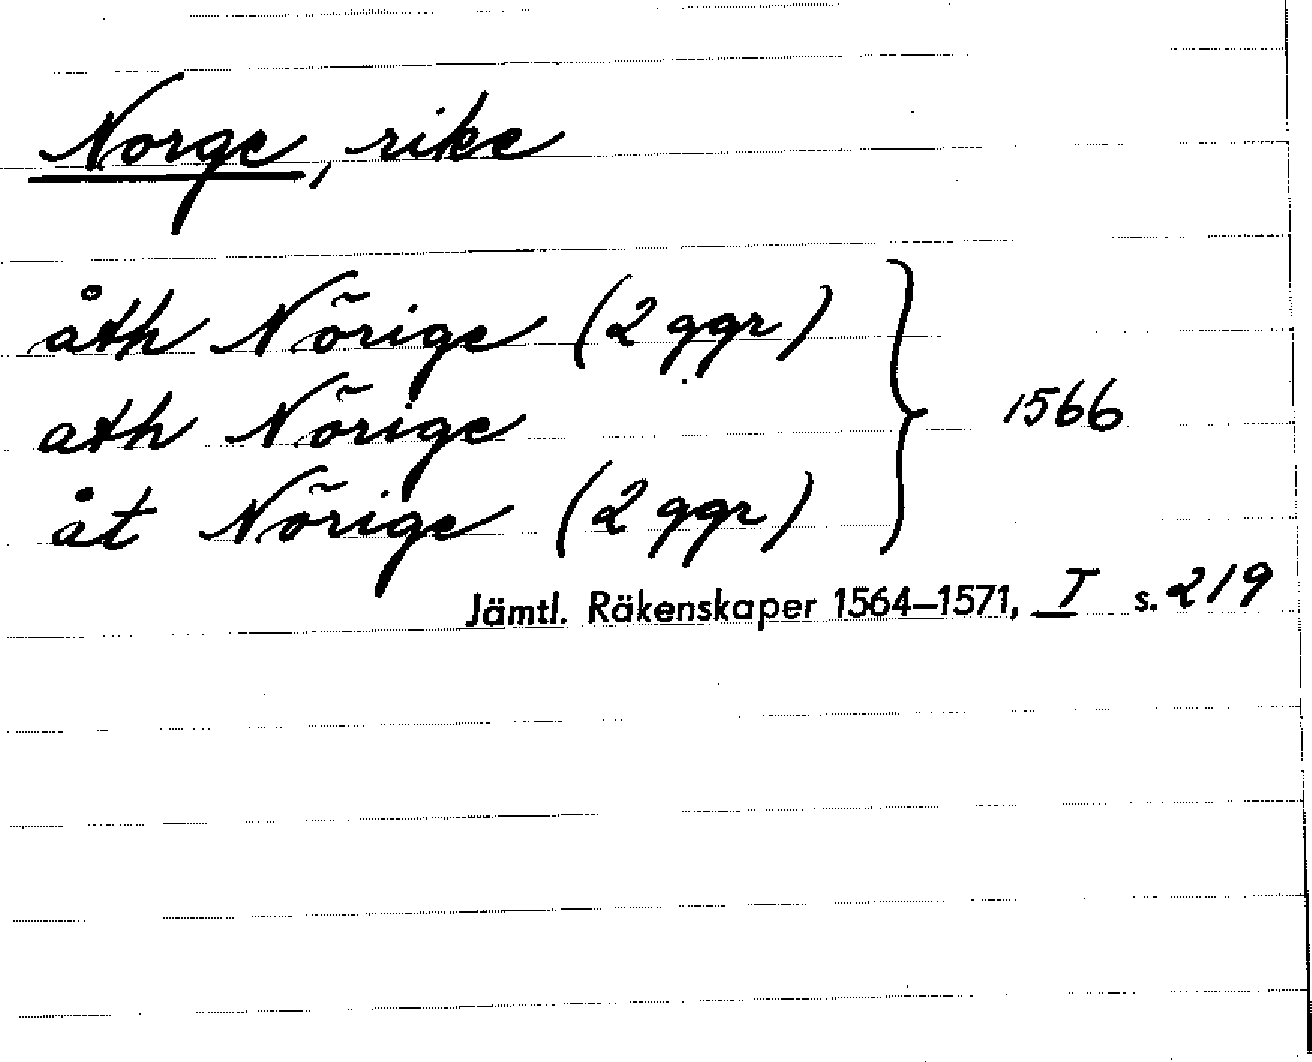 Norge, rike
åth Nõrige (2 ggr)
ath Nõrige
åt Nõrige (2 ggr)
} 1566
Jämtl. Räkenskaper 1564–1571, I s. 219